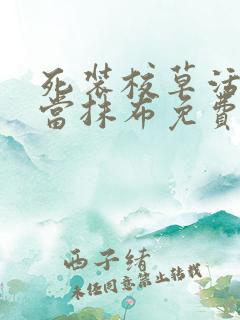 死装校草活
当抹布免费
西子绪
未经同意禁止转载